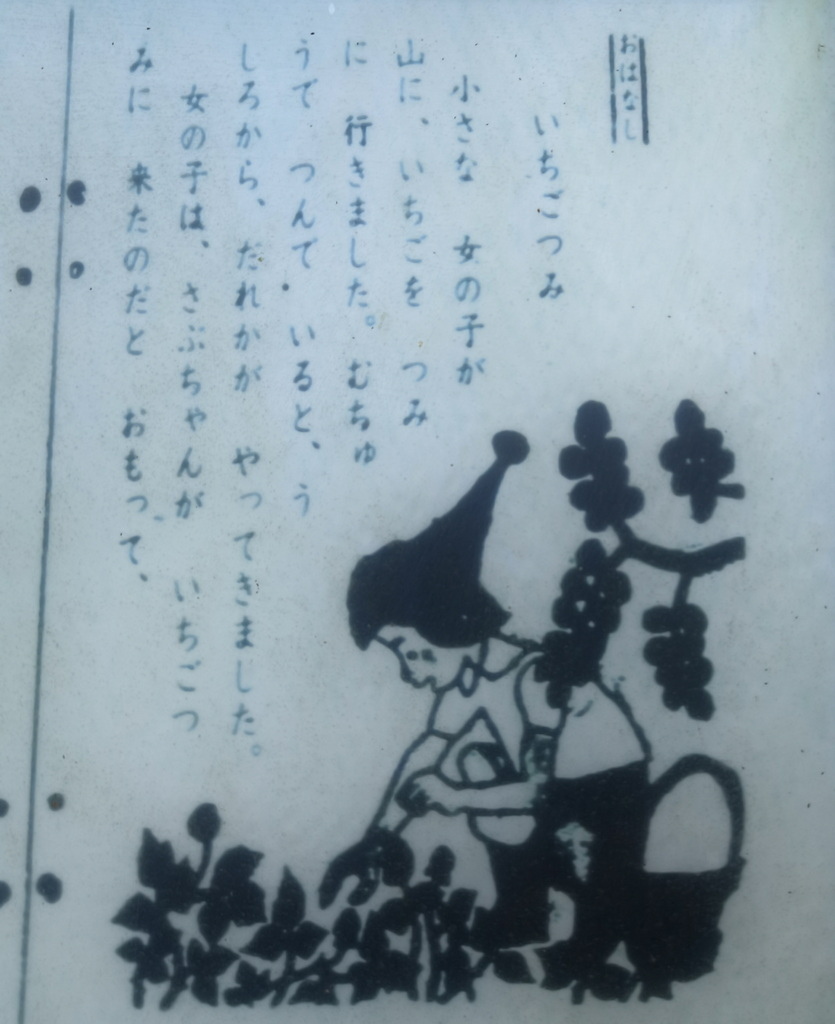 おはなし
いちごつみ
小さな 女の子が
山に、いちごを つみ
に 行きました。むちゅ
うで つんで いると、う
しろから、だれかが やってきました。
女の子は、さぶちゃんが いちごつ
みに 来たのだと おもって、